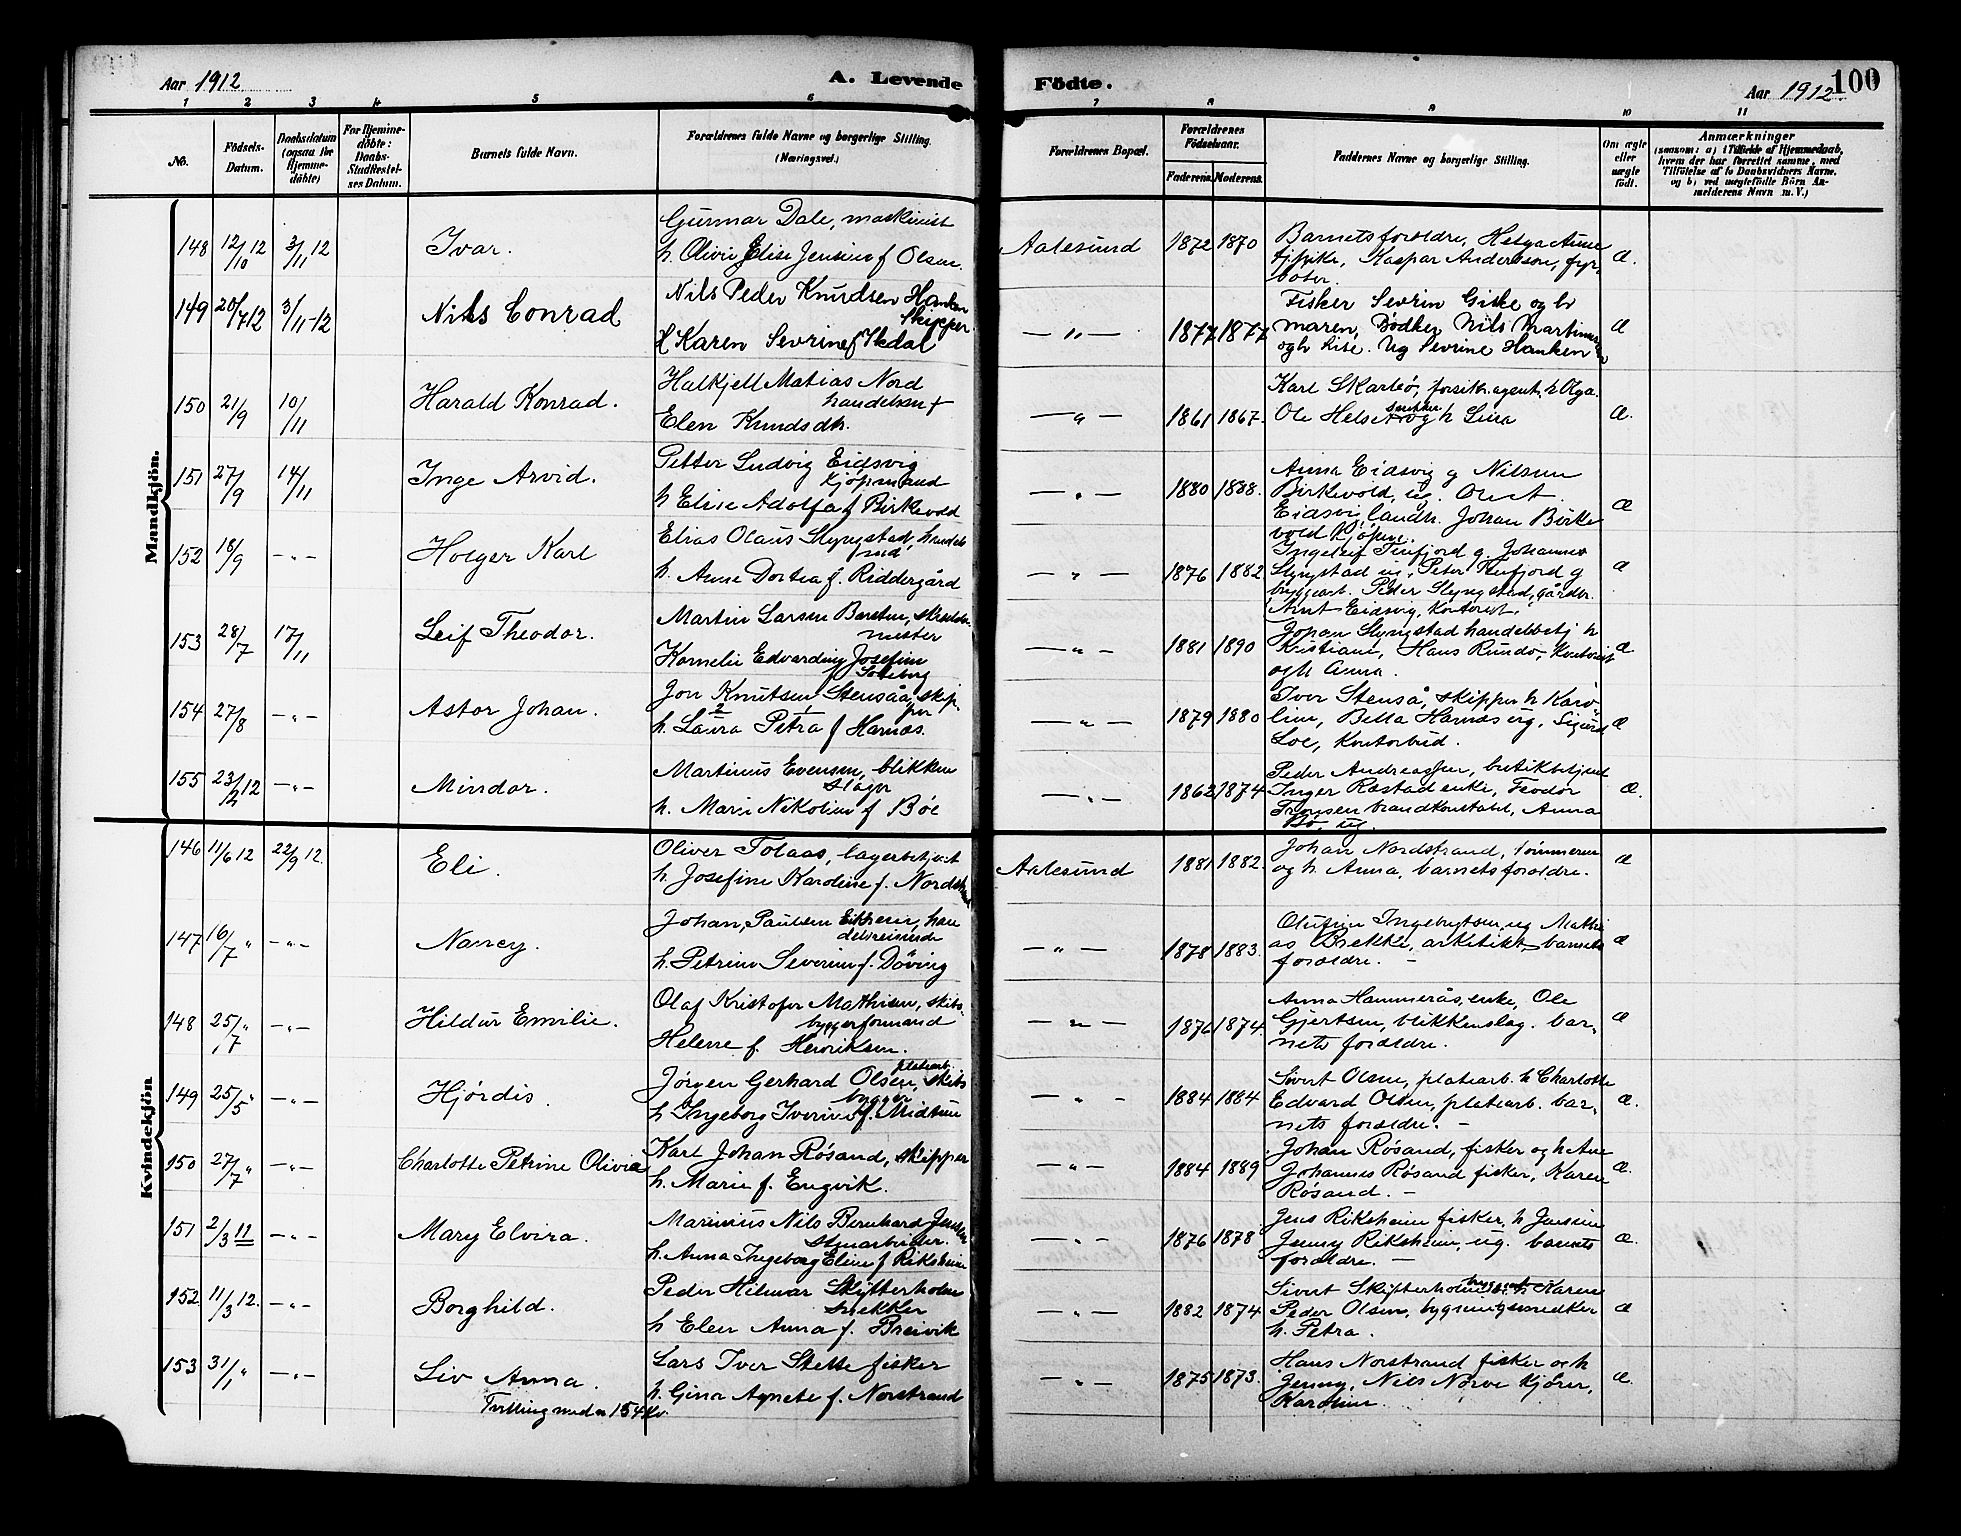 Aar 1912
A. Levende Födte.
Aar 1912
100
1 2 3 4 5 6 7 8 9 10 11
No.
Födsels-Datum.
Daabsdatum (ogsaa for Hjemme-döbte)
For Hjemme-döbte: Daabs-Stadfæstel-ses Datum.
Barnets fulde Navn.
Forældrenes fulde Navne og borgerlige Stilling. (Næringsvei.)
Forældrenes Bopæl.
Forældrenes Födselsaar.
Faderens. Moderens.
Faddernes Navne og borgerlige Stilling.
Om ægte eller uægte födt.
Anmærkninger
(saasom: a) i Tilfælde af Hjemmedaab, hvem der har forrettet samme, med Tilföielse af to Daabsvidners Navne, og b) ved uægtefödte Börn An-melderens Navn m. V.)
Mandkjön.
148 12/10 12 3/11 12 Ivar.
Gunnar Dale, maskinist
h. Olivi Elise Jensine f Olsen.
Aalesund 1872 1870
Barnets foreldre, Helga Aune
pike, Kaspar Anderson, fyr-
böter
Æ.
149 20/7 12 3/11-12 Nils Conrad
Nils Peder Knudsen Hanken
Skipper
H Karen Sevrine f Ikdal
— " — 1877 1877
Fisker Sevrin Giske og h
maren, Bødker Nils Martinussen
og h Lise. Ug Sevrine Hanken
Æ
150 21/9 10/11 Harald Konrad.
Halkjell Matias Nord
handelsm f
Elen Knudsdtr.
— " — 1861 1867.
Karl Skarbö, forsikr.agent, h Olga.
Ole Helseth snekker og h Lina
Æ.
151 27/9 14/11 Inge Arvid.
Petter Ludvig Eidsvig
Kjöpmand
h Elise Adolfa f Birkevold
— " — 1880 1888.
Anna Eidsvig g Nilsine
Birkevold, ug.
Eidsvig, landh. Johan Birke
vold Kjöpm.
Æ
152 18/9 — " — Holger Karl
Elias Olaus Slyngstad, handels
md
h. Anne Dortea f. Riddergård
— " — 1876 1882
Ingeleif Finfjord g. Johanne
Slyngstad ug, Peter Finfjord g
byggearb. Peder Slyngstad, gårdbr.
Arnt Eidsvig, kontorist.
Æ
153 28/7 17/11 Leif Theodor.
Martin Larsen
mester
Kornelie Edvardine Josefine
— " — 1881 1890
Johan Slyngstad handelsbetj h
Kristiane, Hans Rundö, Kontorist
og h Anna.
Æ
154 27/8 — " — Astor Johan.
Jon Knutsen Stensåa, skip-
per
h. Laura Petra f Harnæs.
— " — 1879 1880
Iver Stenså, skipper h Karo-
line, Bella Harnæs ug, Sigurd
Loe, Kontorbud.
Æ
155 23/2 12 — " — Mindor.
Martinus Evensen, blikken
slager
h. Marie Nikoline f Böe
— " — 1862 1874
Peder Andreassen, butikbetjent
Inger Råstad enke, Teodor
Tronsen brandkonstabel, Anna
Bö, ug.
Æ.
Kvindekjön
146 11/6 12 22/9 12. Eli.
Oliver Tolaas, lagerbetjent
h. Josefine Karoline f. Nordstrand
Aalesund 1881 1882.
Johan Nordstrand, tömmerm
og h Anna, barnets foreldre.
Æ
147 16/7 " — " — Nancy.
Johan Paulsen, han
delsreisende
h. Petrine Severine f. Döving
— " — 1878 1883.
Olufine Ingebrigtsen, ug Mathi
as Brekke, arkitekt barnets
foreldre. —
Æ
148 25/7 " — " — Hildur Emilie.
Olaf Kristofer Mathisen, skibs-
byggerformand
Helene f. Henriksen.
— " — 1876 1874.
Anna Hammerås, enke, Ole
Gjertsen, blikkenslag. bar-
nets foreldre.
Æ
149 25/5 " — " — Hjördis.
platearb.
Jörgen Gerhard Olsen, skibs
bygger
h Ingeborg Iverine f. Midtun
— " — 1884 1884
Sivert Olsen, platearb. h Charlotte
Edvard Olsen, platearb. bar-
nets foreldre. —
Æ.
150 27/7 " — " — Charlotte Petrine Olivia
Karl Johan Rösand, skipper
h. Marie f. Engvik.
— " — 1884 1889
Johan Rösand, fisker og h Ane
Johannes Rösand fisker, Karen
Rösand. —
Æ.
151 2/3 11 — " — Mary Elvira.
Marinius Nils Bernhard Jensen
h. Anna Ingeborg Eline f Riksheim
— " — 1876 1878
Jens Riksheim fisker, h Jensine
Jenny Riksheim, ug. barnets
foreldre. —
Æ.
152 11/3 12. — " — Borghild.
Peder Hilmar Skytterholm
snekker
h Elen Anna f. Breivik
— " — 1882 1874
Sivert Skytterholm h Karen
Peder Olsen, bygningssnedker
h. Petra.
Æ
153 31/1 " — " — Liv Anna.
Tvilling med no 154 kv.
Lars Iver Stette fisker
h. Gina Agnete f. Norstrand
— " — 1875 1873.
Hans Norstrand fisker og h
Jenny, Nils Norve kjörer,
Karoline.
Æ.